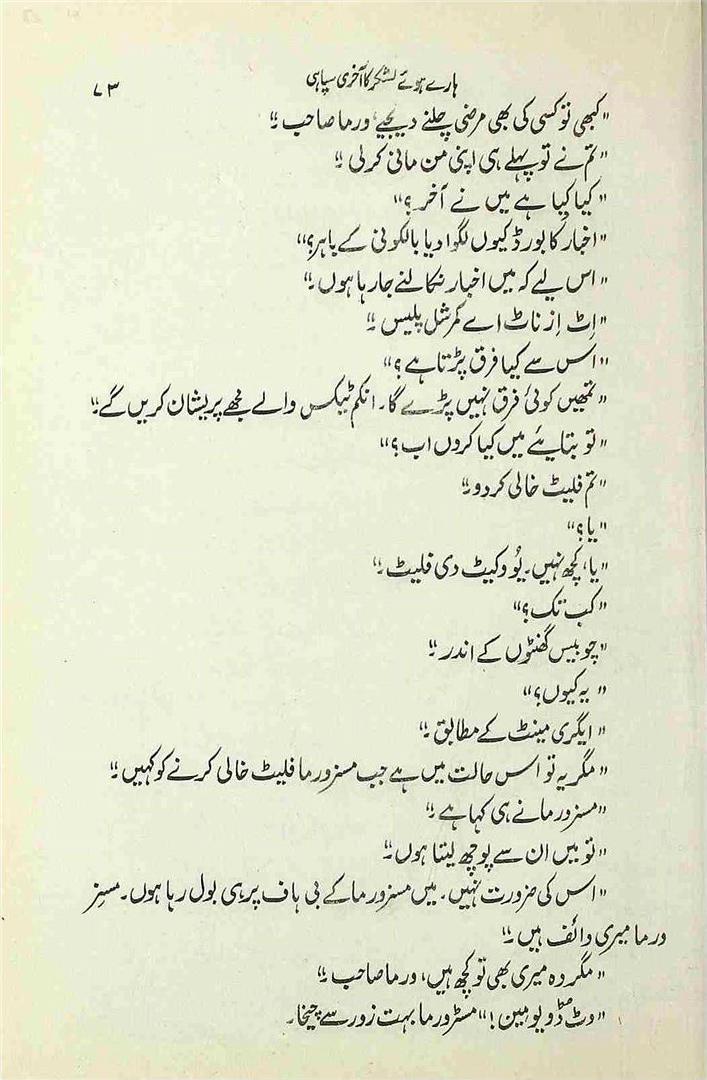 ہارے ہوئے لشکر کا آخری سپاہی ۷۳
"کبھی تو کسی کی بھی مرضی چلنے دیجیے، ورما صاحب۔"
"تم نے تو پہلے ہی اپنی من مانی کر لی۔"
"کیا کِیا ہے میں نے آخر؟"
"اخبار کا بورڈ کیوں لگوا دیا بالکونی کے باہر؟"
"اس لیے کہ میں اخبار نکالنے جا رہا ہوں۔"
"اِٹ اِز ناٹ اے کمرشل پلیس۔"
"اس سے کیا فرق پڑتا ہے؟"
"تمھیں کوئی فرق نہیں پڑے گا۔ انکم ٹیکس والے مجھے پریشان کریں گے۔"
"تو بتایئے میں کیا کروں اب؟"
"تم فلیٹ خالی کر دو۔"
"یا؟"
"یا، کچھ نہیں۔ یُو وکیٹ دی فلیٹ۔"
"کب تک؟"
"چوبیس گھنٹوں کے اندر۔"
"یہ کیوں؟"
"ایگری مینٹ کے مطابق۔"
"مگر یہ تو اس حالت میں ہے جب مسز ورما فلیٹ خالی کرنے کو کہیں۔"
"مسز ورما نے ہی کہا ہے۔"
"تو میں ان سے پوچھ لیتا ہوں۔"
"اس کی ضرورت نہیں۔ میں مسز ورما کے بی ہاف پر ہی بول رہا ہوں۔ مسز
ورما میری وائف ہیں۔"
"مگر وہ میری بھی تو کچھ ہیں، ورما صاحب۔"
"وٹ ڈو یو مین!" مسٹر ورما بہت زور سے چیخا۔